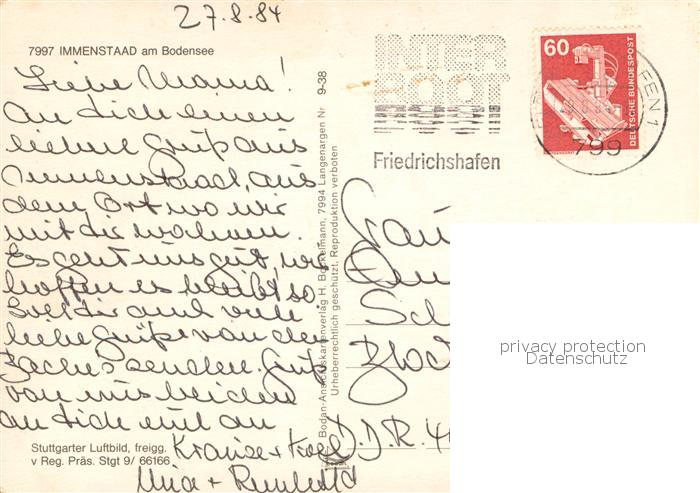 27.8.84
7997 IMMENSTAAD am Bodensee
Liebe Mama!
an dich einen
liebe Grüß aus
Immenstaad, aus
dem Ort wo wir
mit dir wohnen.
Es geht uns gut, wir
hoffen es bleibt so.
Soll dir auch viele
liebe Grüße von der
senden. Gruß
von uns beiden
an dich und an
+
+
Stuttgarter Luftbild, freigg.
v Reg. Präs. Stgt 9/ 66166
9-38
Bodan-Ansichtskartenverlag H. Bockelmann, 7994 Langenargen Nr
Urheberrechtlich geschützt, Reproduktion verboten
INTER
BOOT
Friedrichshafen
60
DEUTSCHE BUNDESPOST
799
Frau
Sch
D.D.R. 4
privacy protection
Datenschutz